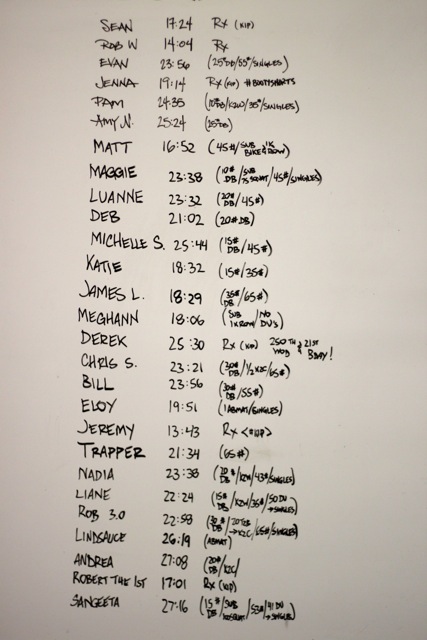 SEAN 17:24 Rx (KIP)
ROB W 14:04 Rx
EVAN 23:56 (25#DB/55#/SINGLES)
JENNA 19:14 Rx (KIP) #BOOTYSHORTS
PAM 24:35 (10#DB/K2W/35#/SINGLES)
AMY N. 25:24 (25#DB)
MATT 16:52 (45#/SUB BIKE 4 ROW)
MAGGIE 23:38 (10# DB/SUB 75 SQUAT/45#/SINGLES)
LUANNE 23:32 (20# DB/45#)
DEB 21:02 (20# DB)
MICHELLE S. 25:44 (15# DB/45#)
KATIE 18:32 (15#/35#)
JAMES L. 18:29 (35# DB/65#)
MEGHANN 18:06 (SUB 1K ROW/NO DU'S)
DEREK 25:30 Rx (KIP) 250TH WOD & 21ST BDAY!
CHRIS S. 23:21 (30# DB/½K2C/65#)
BILL 23:56 (30# DB/55#)
ELOY 19:51 (1 ABMAT/SINGLES)
JEREMY 13:43 Rx <#KIP>
TRAPPER 21:34 (65#)
NADIA 23:38 (20# DB/K2W/43#/SINGLES)
LIANE 22:24 (15# DB/K2W/35#/50 DU →SINGLES)
ROB 3.0 22:58 (30# DB/20 T2B →K2C/65#/SINGLES)
LINDSAUCE 26:19 (ABMAT)
ANDREA 27:08 (20# DB/K2C/
ROBERT THE 1ST 17:01 Rx (KIP)
SANGEETA 27:16 (15# DB/SUB SQUAT/53#/41 DU →SINGLES)